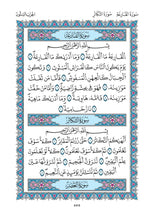 سورة القارعة سورة التكاثر
سورة القارعة
بسم الله الرحمن الرحيم
القارعة ما القارعة وما أدراك ما القارعة
يوم يكون الناس كالفراش المبثوث وتكون
الجبال كالعهن المنفوش فأما من ثقلت
موازينه فهو في عيشة راضية وأما من خفت
موازينه فأمه هاوية وما أدراك ما هيه
نار حامية
سورة التكاثر
بسم الله الرحمن الرحيم
ألهاكم التكاثر حتى زرتم المقابر كلا سوف تعلمون
ثم كلا سوف تعلمون كلا لو تعلمون
علم اليقين لترون الجحيم ثم لترونها
عين اليقين ثم لتسألن يومئذ عن النعيم
سورة العصر